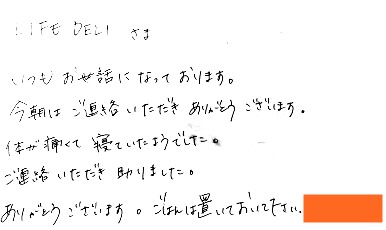 LIFE DELI さま
いつもお世話になっております。
今朝はご連絡いただきありがとうございます。
体が痛くて寝ていたようでした。
ご連絡いただき助りました。
ありがとうございます。ごはんは置いておいて下さい。